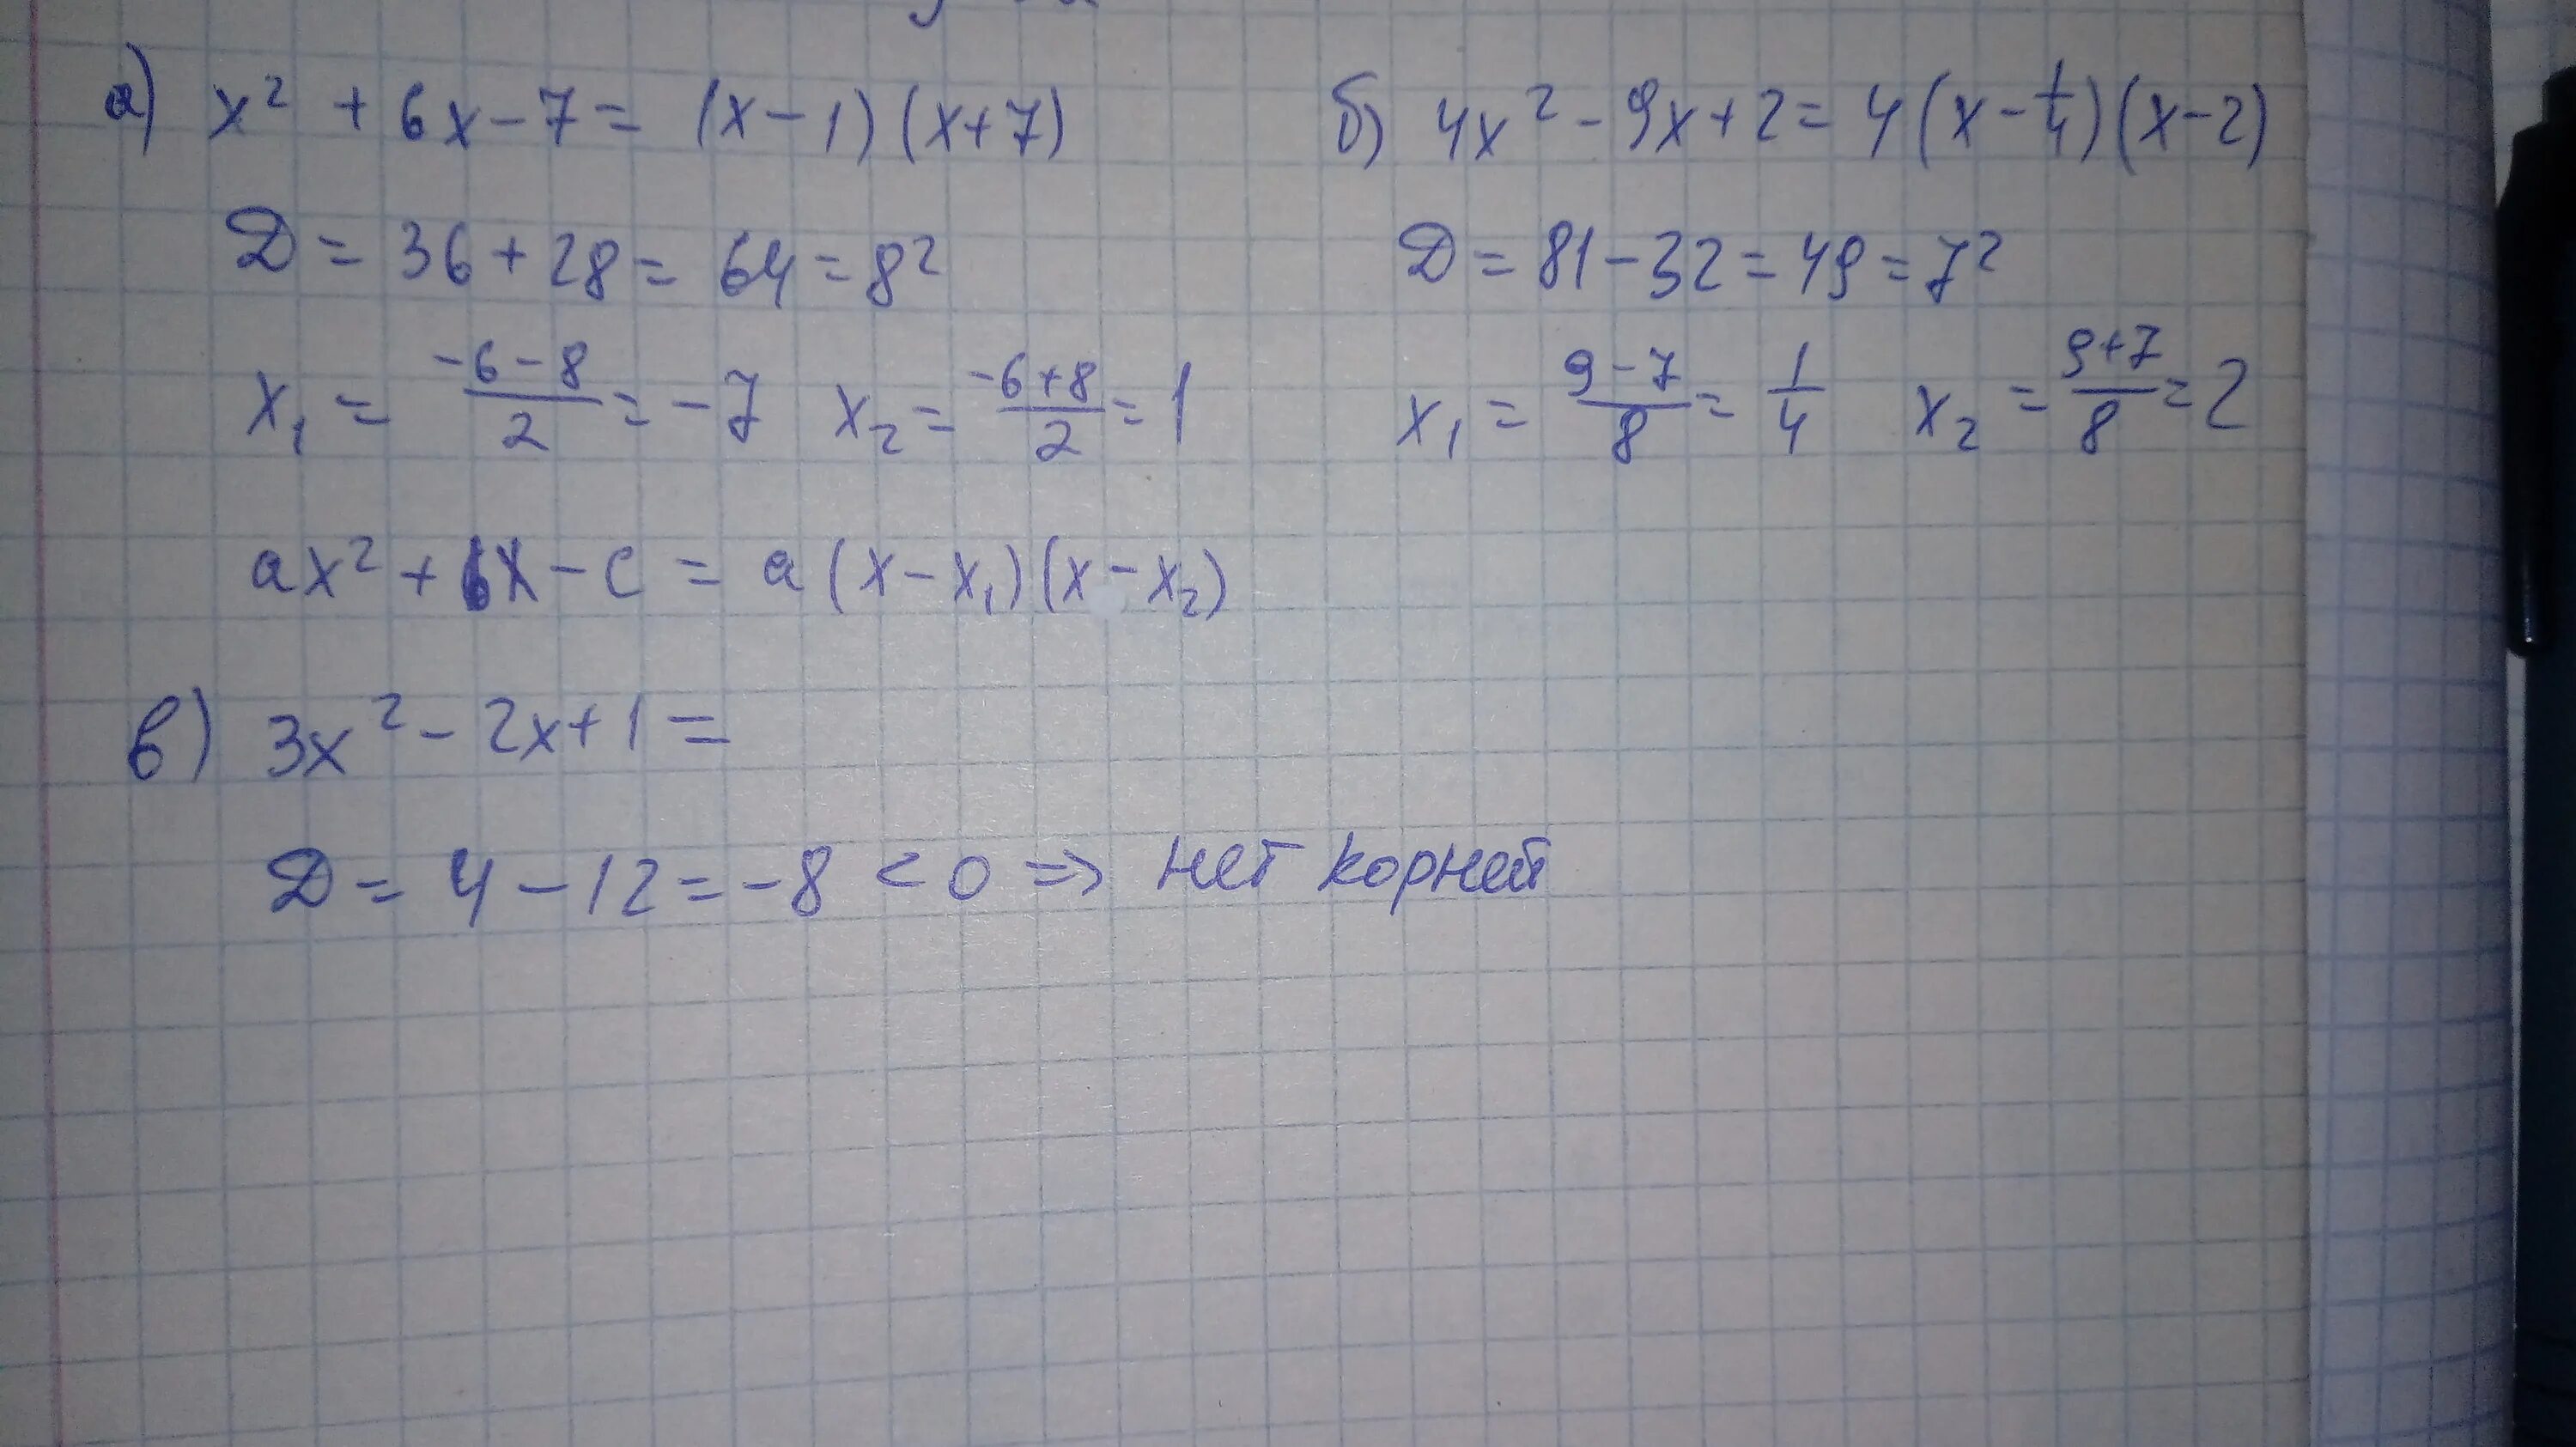 а) x² + 6x - 7 = (x - 1)(x + 7)
D = 36 + 28 = 64 = 8²
x₁ = (-6 - 8)/2 = -7 x₂ = (-6 + 8)/2 = 1
ax² + bx - c = a(x - x₁)(x - x₂)
б) 4x² - 9x + 2 = 4(x - 1/4)(x - 2)
D = 81 - 32 = 49 = 7²
x₁ = (9 - 7)/8 = 1/4 x₂ = (9 + 7)/8 = 2
в) 3x² - 2x + 1 =
D = 4 - 12 = -8 < 0 => нет корней